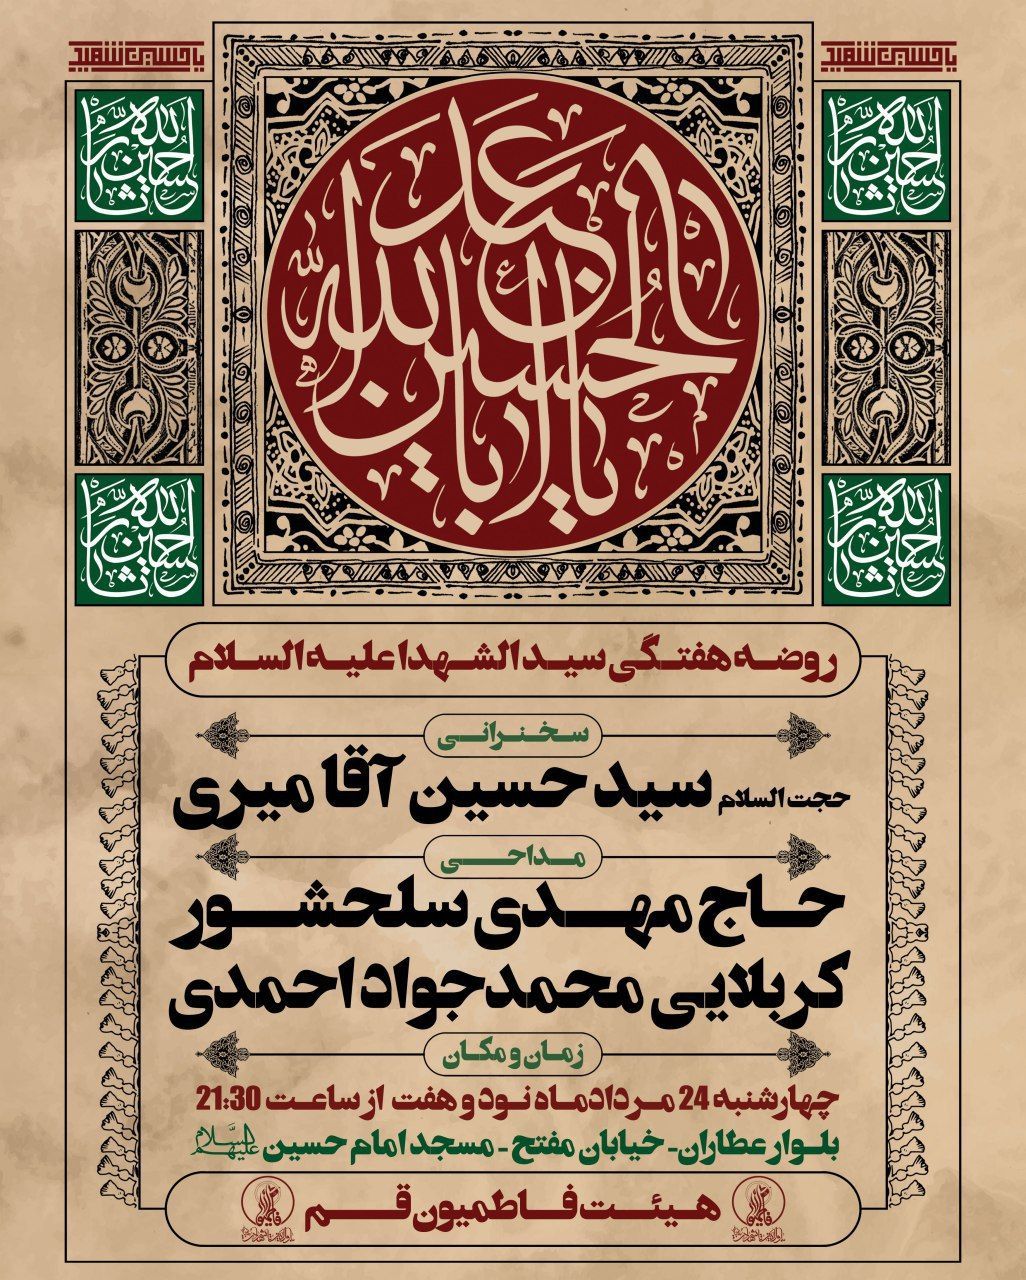 یا حسین شهید
یا حسین شهید
یا ثارالله حسین
یا ثارالله حسین
یا اباعبدالله الحسین
یا ثارالله حسین
یا ثارالله حسین
روضه هفتگی سیدالشهدا علیه السلام
سخنرانی
حجت السلام سید حسین آقا میری
مداحی
حاج مهدی سلحشور
کربلایی محمدجواد احمدی
زمان و مکان
چهارشنبه 24 مردادماه نود و هفت از ساعت 21:30
بلوار عطاران - خیابان مفتح - مسجد امام حسین علیه السلام
هیئت فاطمیون قم